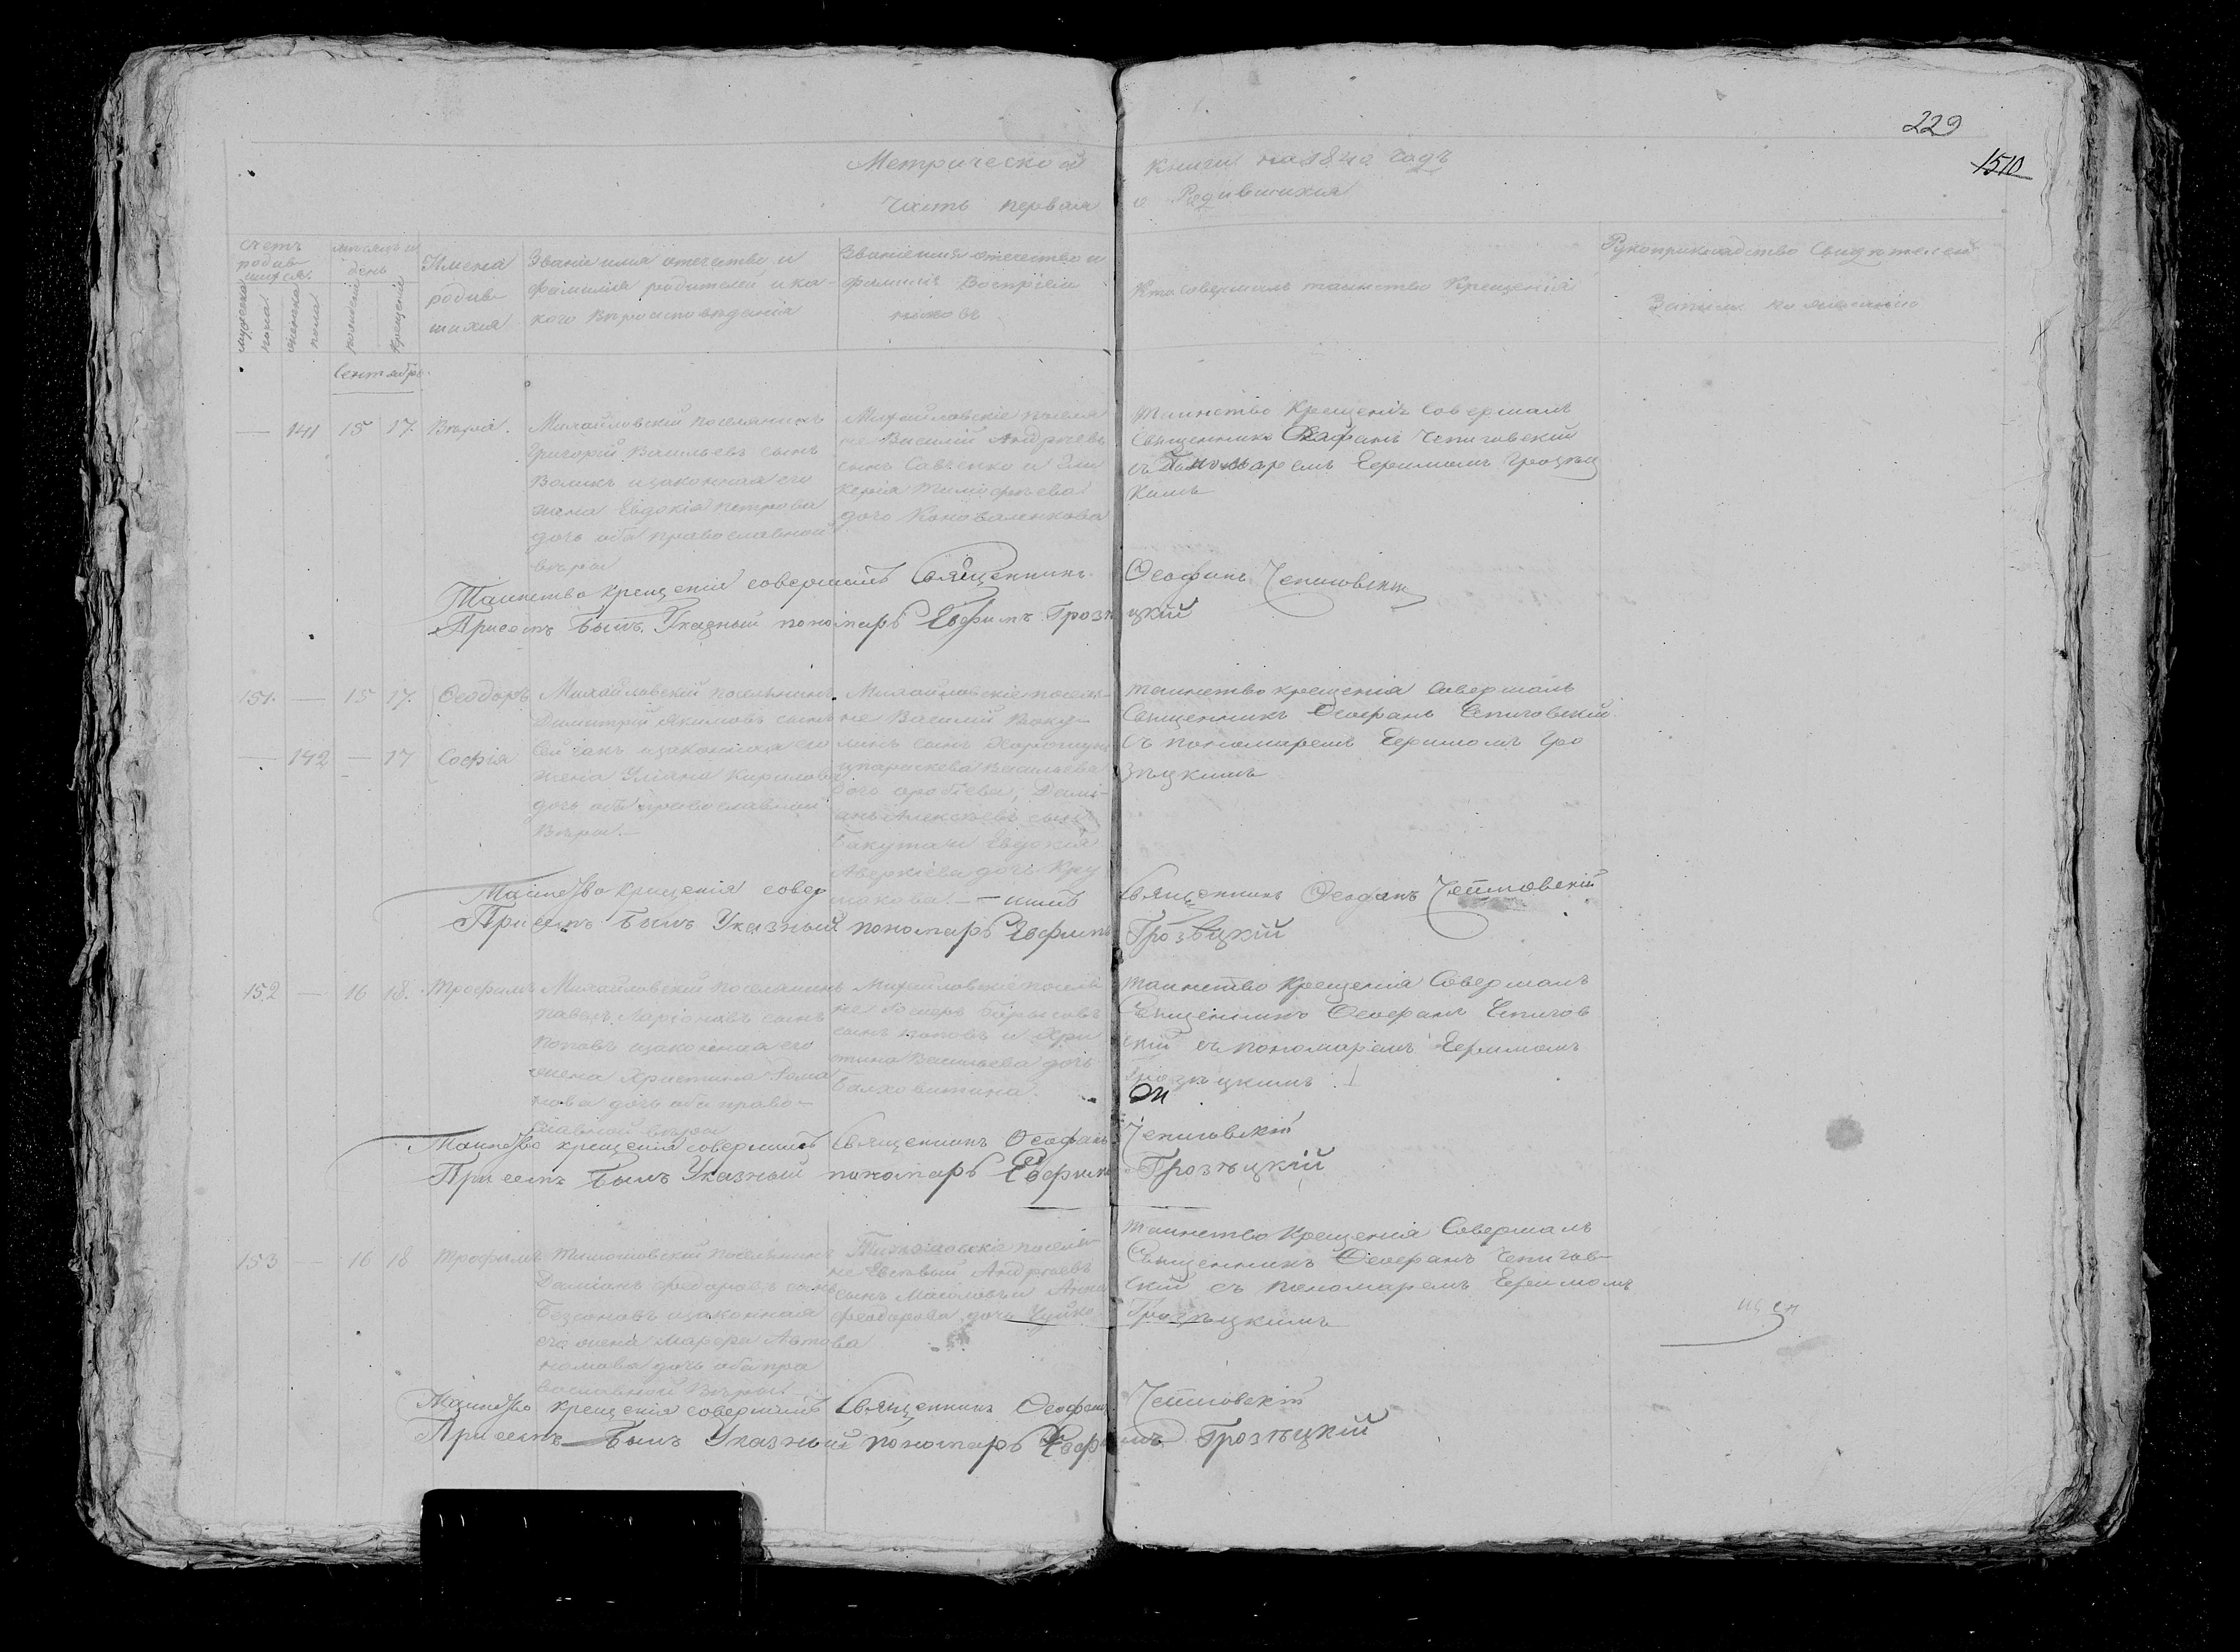 229
1510
Метрической книги на 1842 годъ
Часть первая о Родившихся
Счетъ родив-шихся
мужеска пола
женска пола
месяцъ и день
рожденія
крещенія
Имена родив-шихся
Званіе имя отечество и
фамилія родителей и ка-
кого вѣроисповѣданія
Званіе имя отечество и
фамилія Воспріем
никовъ
Кто совершалъ таинство Крещенія
Рукоприкладство Свидѣтелей
Записи по желанію
Сентябрь
— 141 15 17. Вѣра.
Михайловскій поселянинъ
Григорій Васильевъ сынъ
Воликъ изаконная его
жена Евдокія Петрова
дочь оба православной
вѣры
Михайловскіе поселя
не Василій Андреевъ
сынъ Савченко и Гли
керія Тимофѣева
дочь Коноваленкова
таинство Крещенія Совершалъ
Священникъ Ѳеофанъ Чепиговскій
съ Пономаремъ Ефимомъ Грозѣц
кимъ
Таинство крещенія совершилъ Священникъ Ѳеофанъ Чепиговскій
Присемъ былъ Указный пономарь Евфимъ Грозѣцкій
151. — 15 17. Ѳеодоръ
— 142 — 17 Софія
Михайловскій поселянинъ
Димитрій Якимовъ сынъ
изаконная его
жена Уліана Кирилова
дочь оба православной
Вѣры.—
Михайловскіе поселя-
не Василій
сынъ
ипараскева Васильева
дочь Дами-
анъ Алексѣевъ сынъ
Бакута и Евдокія
Аверкіева дочь
таинство крещенія Совершалъ
Священникъ Ѳеофанъ Чепиговскій
съ пономаремъ Ефимомъ Гро
зѣцкимъ
Таинство крещенія совер — шилъ Священникъ Ѳеофанъ Чепиговскій
Присемъ былъ Указный пономарь Евфимъ Грозѣцкій
152 — 16 18. Трофимъ
Михайловскій поселянинъ
Павелъ Ларіоновъ сынъ
Поповъ изаконная его
жена Христина Рома
нова дочь оба право-
славной вѣры
Михайловскіе поселя
не Борисовъ
сынъ Поповъ и Хри
стина Васильева дочь
Балховитина.
таинство крещенія Совершалъ
Священникъ Ѳеофанъ Чепигов
скій съ пономаремъ Ефимомъ
Грозѣцкимъ
Таинство крещенія совершилъ Священникъ Ѳеофанъ Чепиговскій
Присемъ былъ Указный пономарь Евфимъ Грозѣцкій
153 — 16 18 Трофимъ
поселянинъ
Даміанъ Федоровъ сынъ
Безсоновъ изаконная
его жена Марфа Авто
номова дочь оба пра
вославной Вѣры
поселя
не Андреевъ
сынъ и Анна
Феодорова дочь
таинство крещенія Совершалъ
Священникъ Ѳеофанъ Чепигов-
скій съ пономаремъ Ефимомъ
Грозѣцкимъ
Таинство крещенія совершилъ Священникъ Ѳеофанъ Чепиговскій
Присемъ былъ Указный пономарь Евфимъ Грозѣцкій